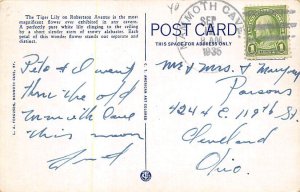 The Tiger Lily on Robertson Avenue is the most
magnificent flower ever exhibited in any cavern.
A perfectly pure white lily clinging to the ceiling
by a short slender stem of snowy alabaster. Each
petal of this wonder flower stands out separate and
distinct.
Pete & I went
thru the old
mammoth Cave
this noon
POST CARD
THIS SPACE FOR ADDRESS ONLY
MAMMOTH CAVE
SEP
AM
1935
1
Mr & Mrs.
Parsons
424 E 119th St.
Cleveland
Ohio.